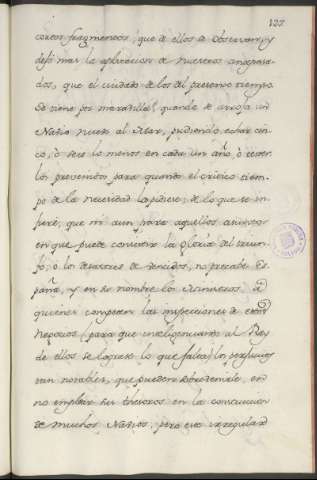 127
cortos fragmentos, que de ellos se observan, y
dejò mas la aplicacion de nuestros antepasa-
dos, que el cuidado de los del presente tiempo.
Se tiene por maravilla, quando se arroja un
Navio nuevo al Mar, pudiendo echar cin-
co, ò seis lo menos en cada un año, ò tener-
los prevenidos para quando el critico tiem-
po de la necesidad lo pidiere, de lo que se in-
fiere, que ni aun para aquellos
en que puede consistir la gloria del triun-
fo, ò lo de vencidos, no precabe Es-
paña, y en su nombre los Ministros à
quienes competen las inspecciones de estos
negocios (para que inteligenciando al Rey
de ellos se lograse lo que falta) los perjuicios
tan notables, que pueden sobrevenirle, en
no emplear sus thesoros en la construccion
de muchos Navios, pero esta irregular